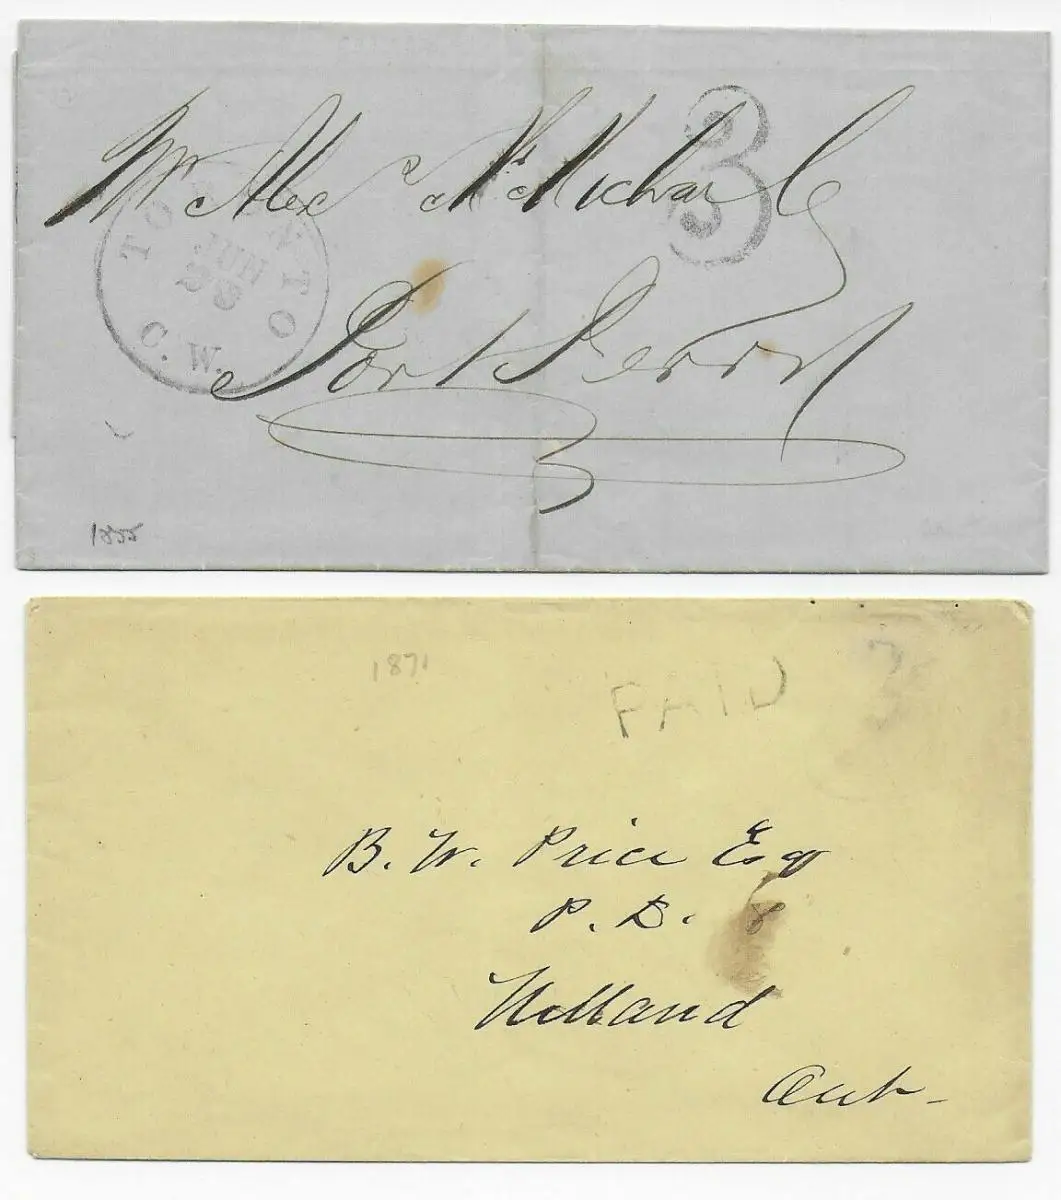 Mr Alex McMichael
3
TORONTO
JUN
28
C. W.
Port Perry
1855
1871
PAID
3
B. W. Price Esqr
P. L. S
Welland
Ont-